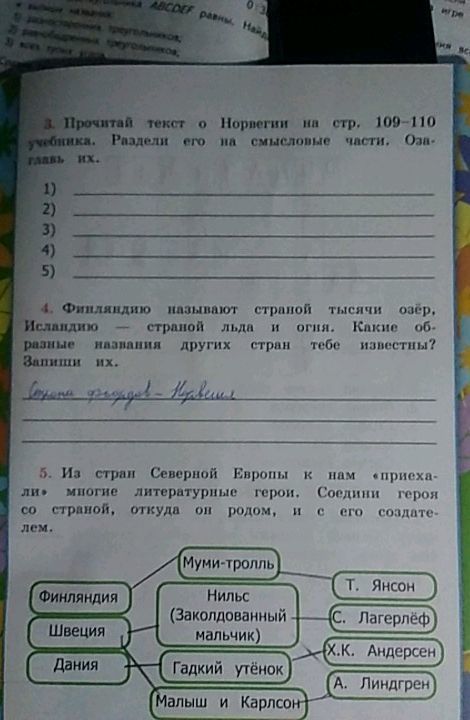 ABCDEF равны. Най
1) разносторонних треугольников;
2) равнобедренных треугольников;
3) всех
игре
3. Прочитай текст о Норвегии на стр. 109–110
учебника. Раздели его на смысловые части. Оза-
главь их.
1)
2)
3)
4)
5)
4. Финляндию называют страной тысячи озёр,
Исландию — страной льда и огня. Какие об-
разные названия других стран тебе известны?
Запиши их.
Страна фьордов – Норвегия
5. Из стран Северной Европы к нам «приеха-
ли» многие литературные герои. Соедини героя
со страной, откуда он родом, и с его создате-
лем.
Муми-тролль
Финляндия
Нильс
(Заколдованный
мальчик)
Т. Янсон
Швеция
С. Лагерлёф
Дания
Гадкий утёнок
Х.К. Андерсен
Малыш и Карлсон
А. Линдгрен